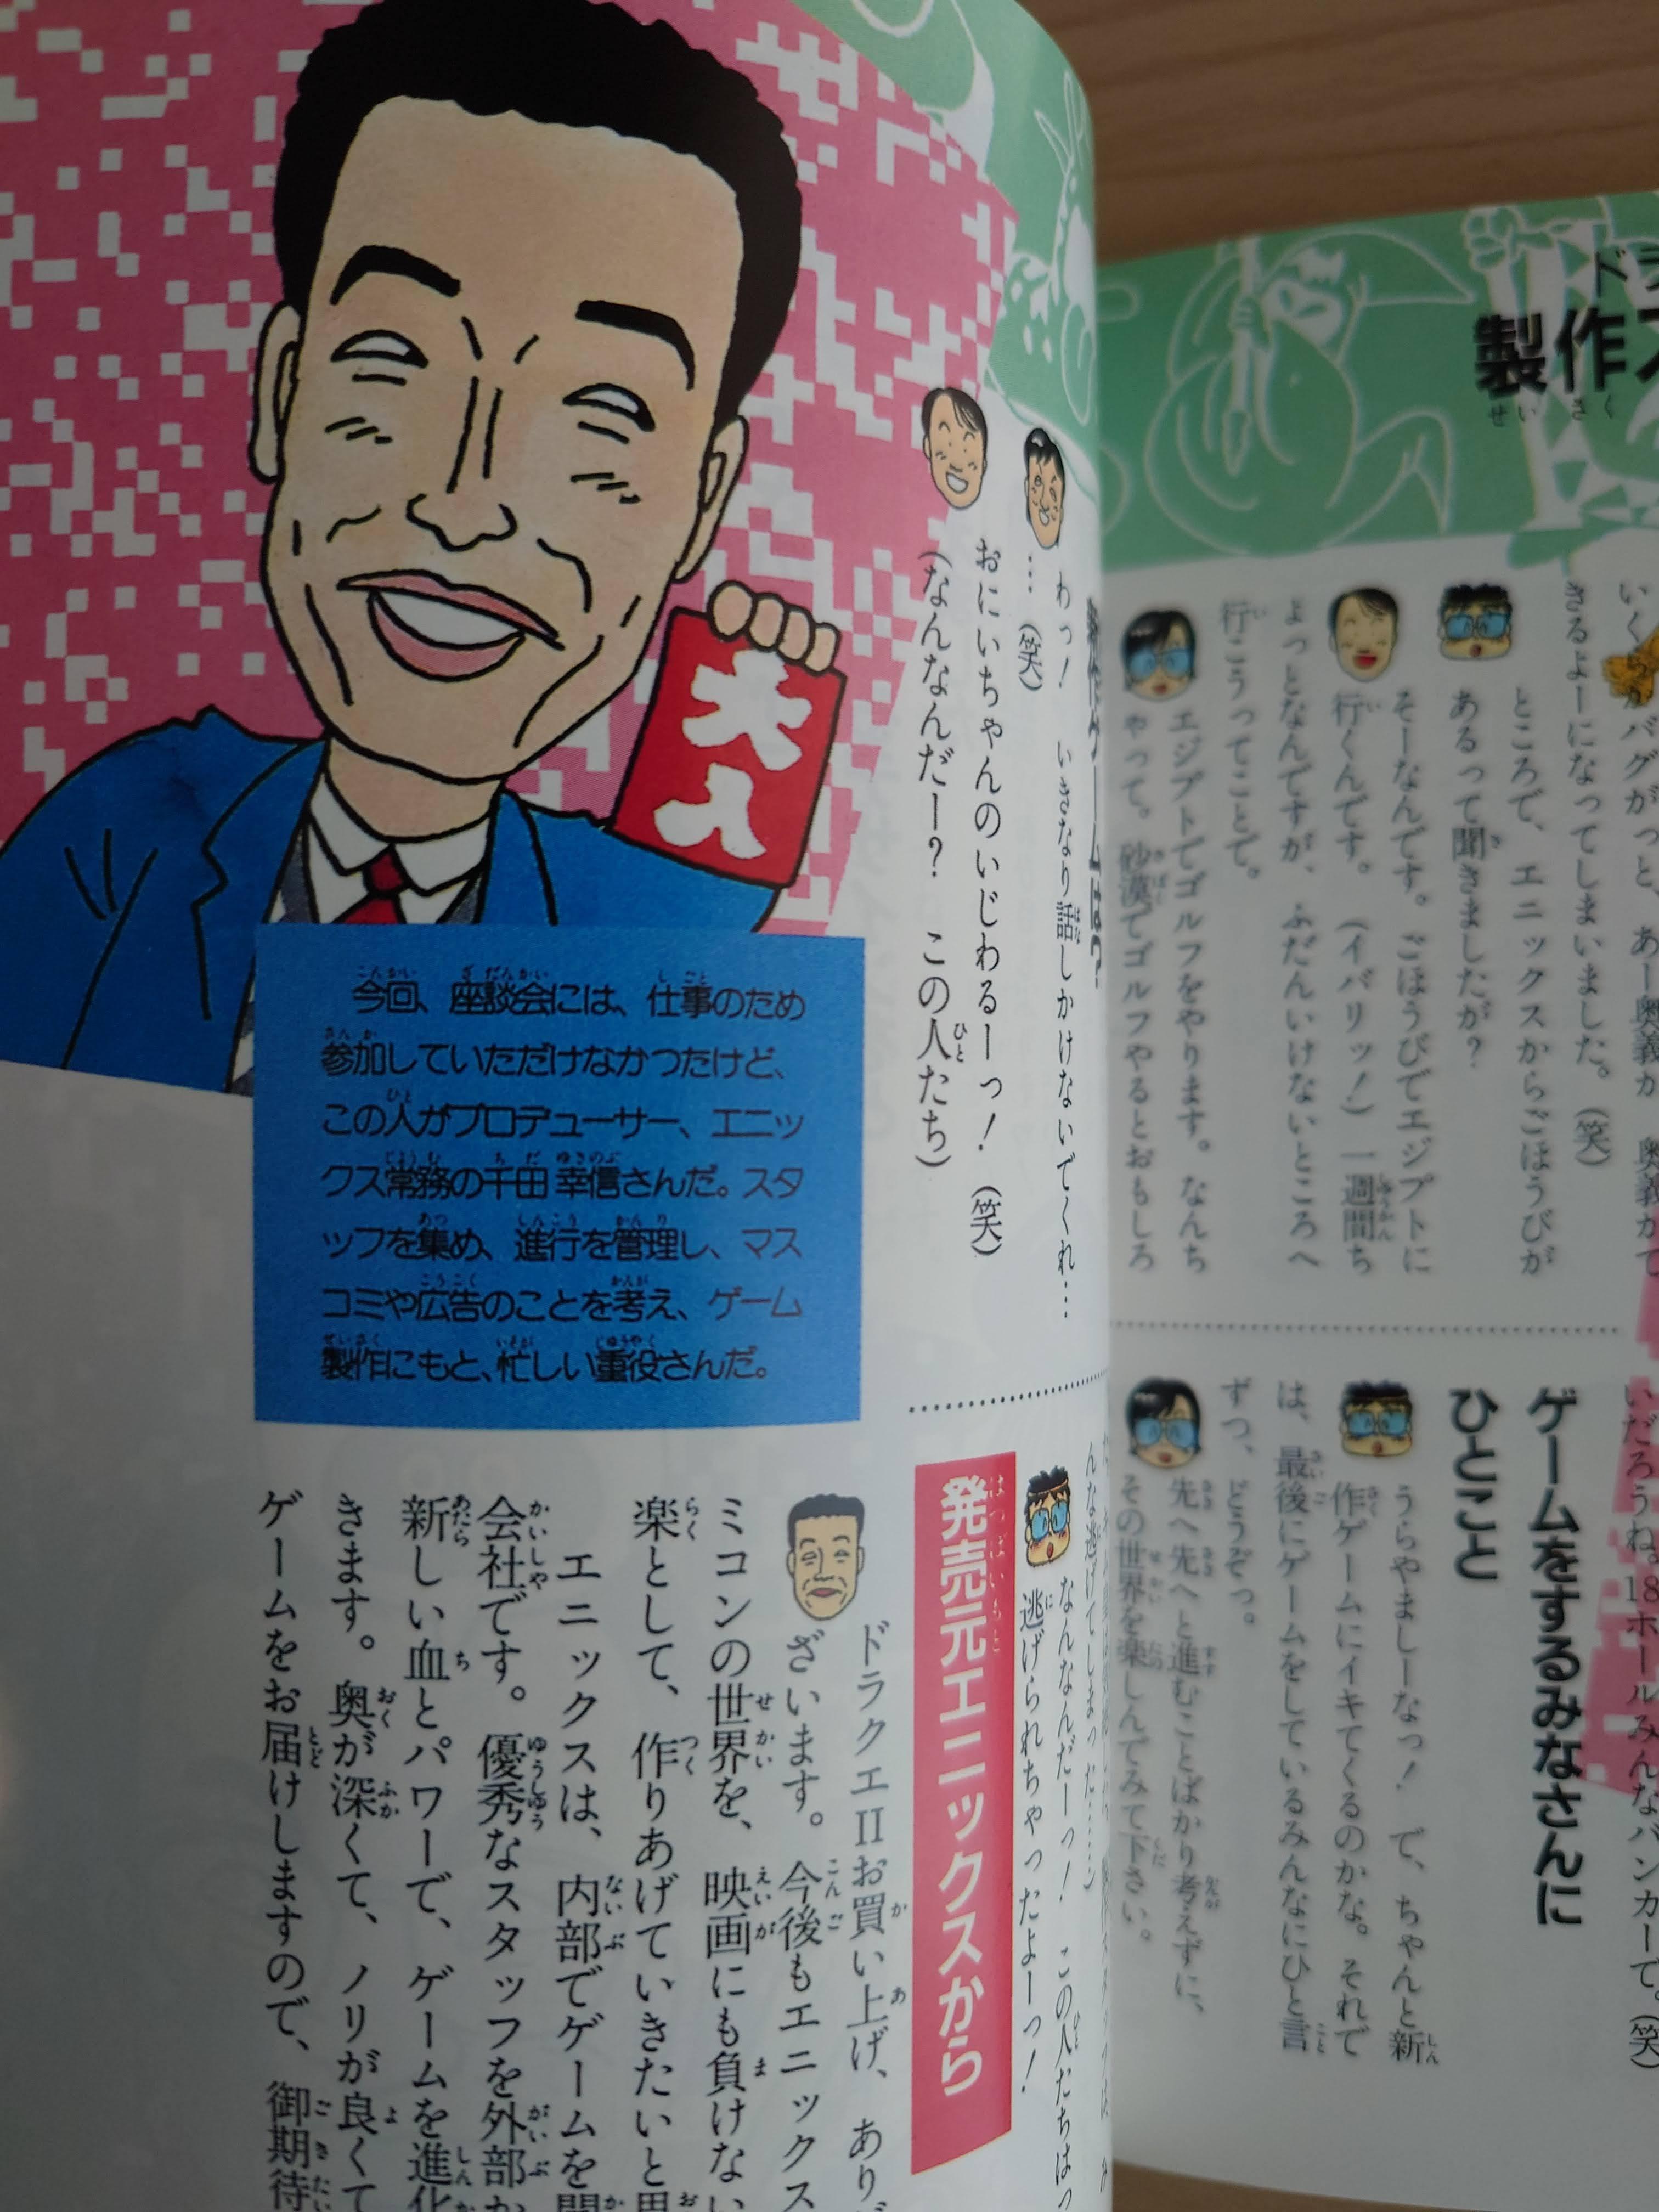 ドラ
製作ス
いく
バグがっと、あー奥義が 奥義がて
きるよーになってしまいました。(笑)
ところで、エニックスからごほうびが
あるって聞きましたが?
そーなんです。ごほうびでエジプトに
行くんです。(イバリッ!)一週間ち
ょっとなんですが、ふだんいけないところへ
行こうってことで。
エジプトでゴルフをやります。なんち
ゃって。砂漠でゴルフやるとおもしろ
いだろうね。18ホールみんなバンカーで。(笑)
ゲームをするみなさんに
ひとこと
うらやましーなっ! で、ちゃんと新
作ゲームにイキてくるのかな。それで
は、最後にゲームをしているみんなにひと言
ずつ、どうぞっ。
先へ先へと進むことばかり考えずに、
その世界を楽しんでみて下さい。
新作ゲームは?
わっ! いきなり話しかけないでくれ…
…(笑)
おにいちゃんのいじわるーっ!(笑)
(なんなんだー? この人たち)
んな逃げてしまった……)
なんなんだーっ! この人たちはっ
逃げられちゃったよーっ!
大人
今回、座談会には、仕事のため
参加していただけなかったけど、
この人がプロデューサー、エニッ
クス常務の千田幸信さんだ。スタ
ッフを集め、進行を管理し、マス
コミや広告のことを考え、ゲーム
製作にもと、忙しい重役さんだ。
発売元エニックスから
ドラクエIIお買い上げ、あり
ざいます。今後もエニックス
ミコンの世界を、映画にも負けない
楽として、作りあげていきたいと思
エニックスは、内部でゲームを開
会社です。優秀なスタッフを外部か
新しい血とパワーで、ゲームを進化
きます。奥が深くて、ノリが良くて
ゲームをお届けしますので、御期待